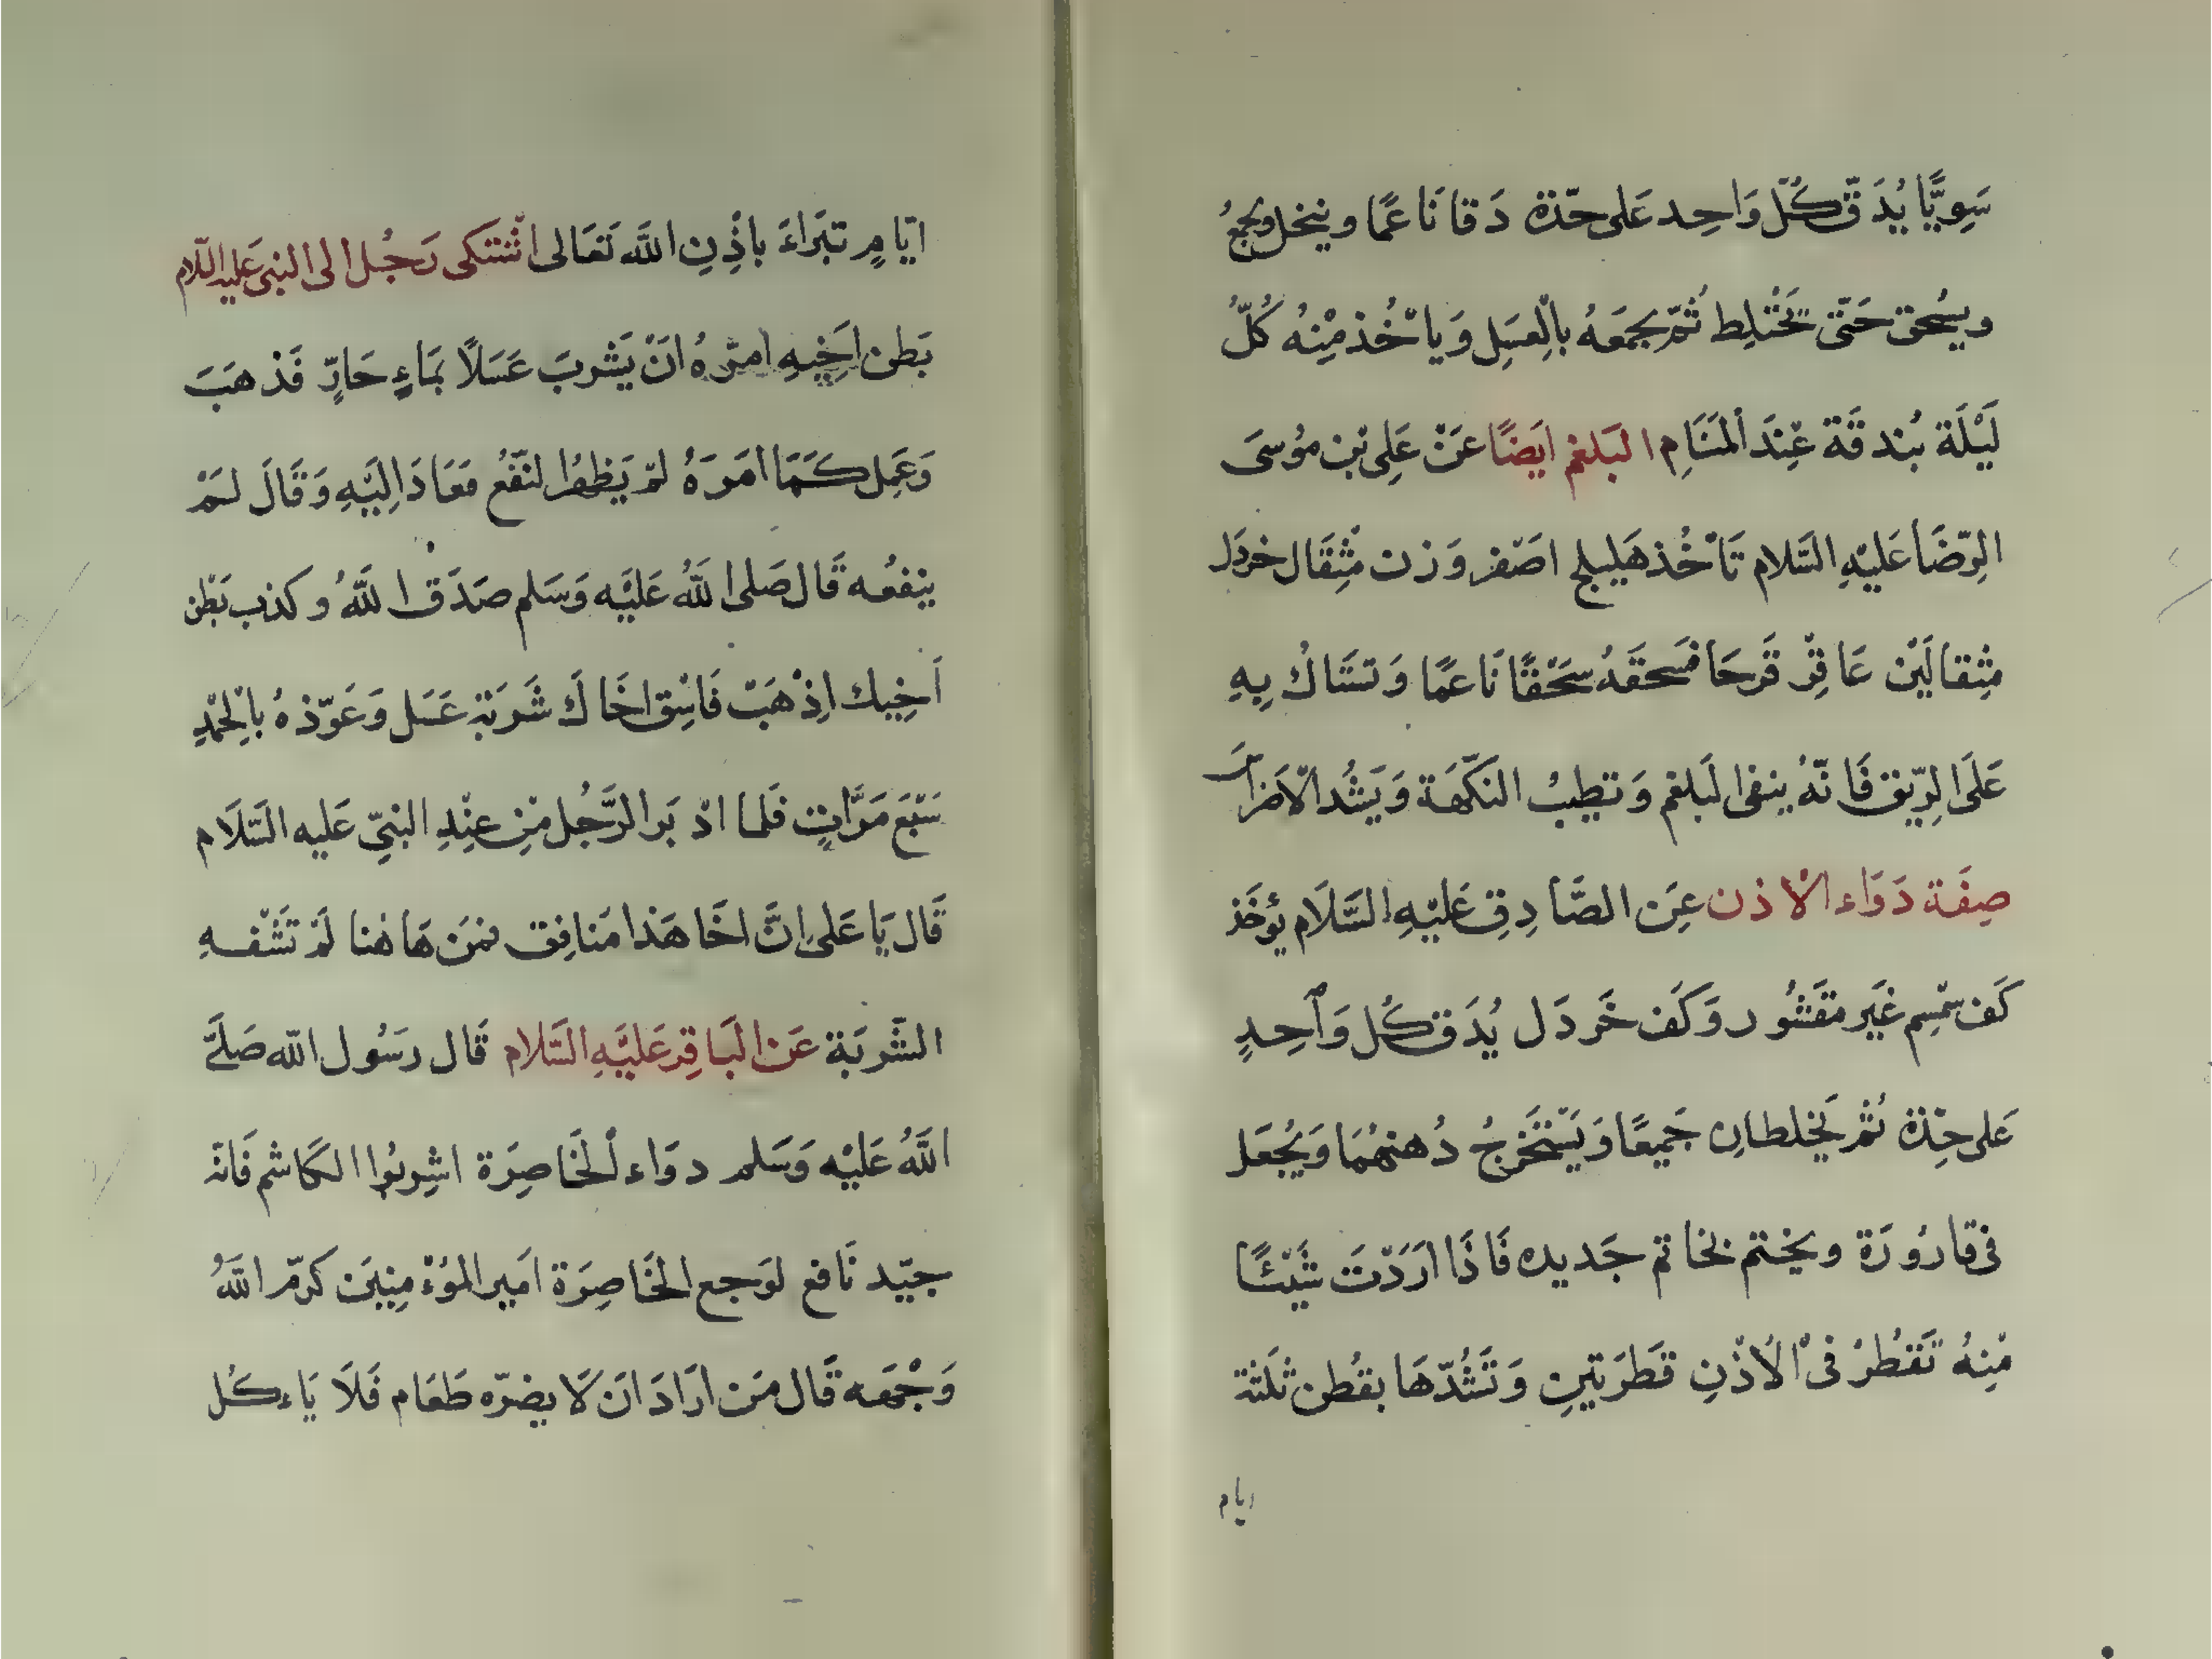 سَوِيًّا يُدَقّ كُلّ وَاحِد عَلى حدّة دَقا نَاعمًا وينخل ويجمعُ
ويسُحق حَتّى تَخْتَلِط ثُمّ يجمَعهُ بالْعِسَلِ وَياْخُذ مِنْهُ كُلّ
لَيْلَة بُندقَة عِنْدَ المَنَامِ البَلغم ايَضًا عَنْ عَلِى بْن موُسىَ
الرّضَا عَليْهِ السَّلام تَاْخُذ هَليلج اصْفر وَزن مْثِقَال خردَل
مثِقالَيْن عَاقِرْ قَرحَا فسَحقَهُ سَحْقًا نَاعمًا وَتسَتَاكُ بِهِ
عَلَى الرِّيق فَانّهُ ينفى البَلغم وَتطيبُ النكّهَة وَيَشُد الْاَضراسَ
صِفَة دَوَاء الْاذن عِن الصَّادِقِ عَليْهِ السَّلَام يؤخَذ
كَف سمْسِم غَير مقَشُور وَكَف خَردَل يُدَق كُل وَاحِدٍ
عَلى حِدّة ثمُ يَخلطانِ جَميعًا وَيَسْتَخرِجُ دُهنهُمَا وَيُجعَل
فى قارُورَة ويختم بخاتم جَديده فَاذَا ارَدْتَ شَيْئًا
مْنِهُ تَقْطُرُ فىْ الْاُذْنِ قطَرَتينِ وَتَشُدّهَا بقُطن ثلَثة
ايام
ايّامٍ تبَراءَ باذْنِ اللَّه تَعَالى اشتكى رَجُل الى النبى عَليه السّلام
بَطن اَخيِهِ امَرهُ انْ يَشربَ عَسَلًا بمَاءٍ حَارّ فَذهَبَ
وَعَمِل كَمَا امَرَهُ لمْ يَظهرُ النّفعُ فعَادَ اِليَهِ وَقَالَ لَمْ
ينْفعُه قَال صَلى اللَّهُ عَليْه وَسَلم صَدَق اللَّهُ وكذب بَطْن
اَخِيك اِذْهَبْ فَاسْق اخَاكَ شَربَة عَسَل وَعَوّذهُ بالْحمْدِ
سَبْعَ مَرَّاتٍ فَلما ادْبَر الرَّجُل مْنِ عنِدِ النبىِّ عَليه السَّلَام
قَال يَا عَلى اِنَّ اخَا هَذا مَنافِق فمَن هَاهُنا لَمْ تَشْفهِ
الشَّربَة عَن البَاقِر عَليَهِ السَّلام قَال رسَوُل اللّه صَلىَّ
اللَّهُ عَليْه وَسَلم دوَاء الْخَاصِرَة اشِربُوا الكَاشم فَانهْ
جيّد نَافع لوَجع الخَاصِرَة امَير الموُءْمِنِينَ كرّم اللَّهُ
وَجْهَه قَال مَن ارَادَ انَ لَا يضرّه طَعَام فَلَا يَاءكُل